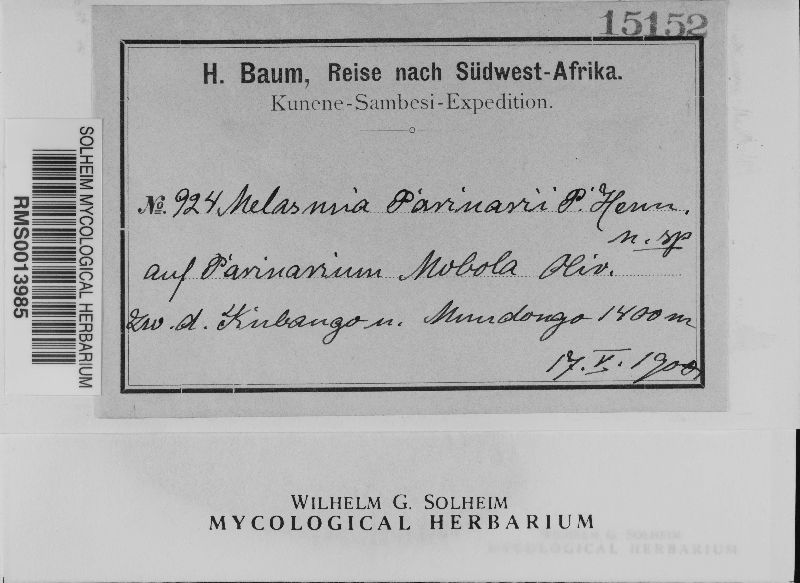 15152
H. Baum, Reise nach Südwest-Afrika.
Kunene-Sambesi-Expedition.
№. 924 Melasmia Parinarii P. Henn.
n. sp
auf Parinarium Mobola Oliv.
zw. d. Kubango u. Mundongo 1400 m
17. V. 1900
SOLHEIM MYCOLOGICAL HERBARIUM
RMS0013985
WILHELM G. SOLHEIM
MYCOLOGICAL HERBARIUM